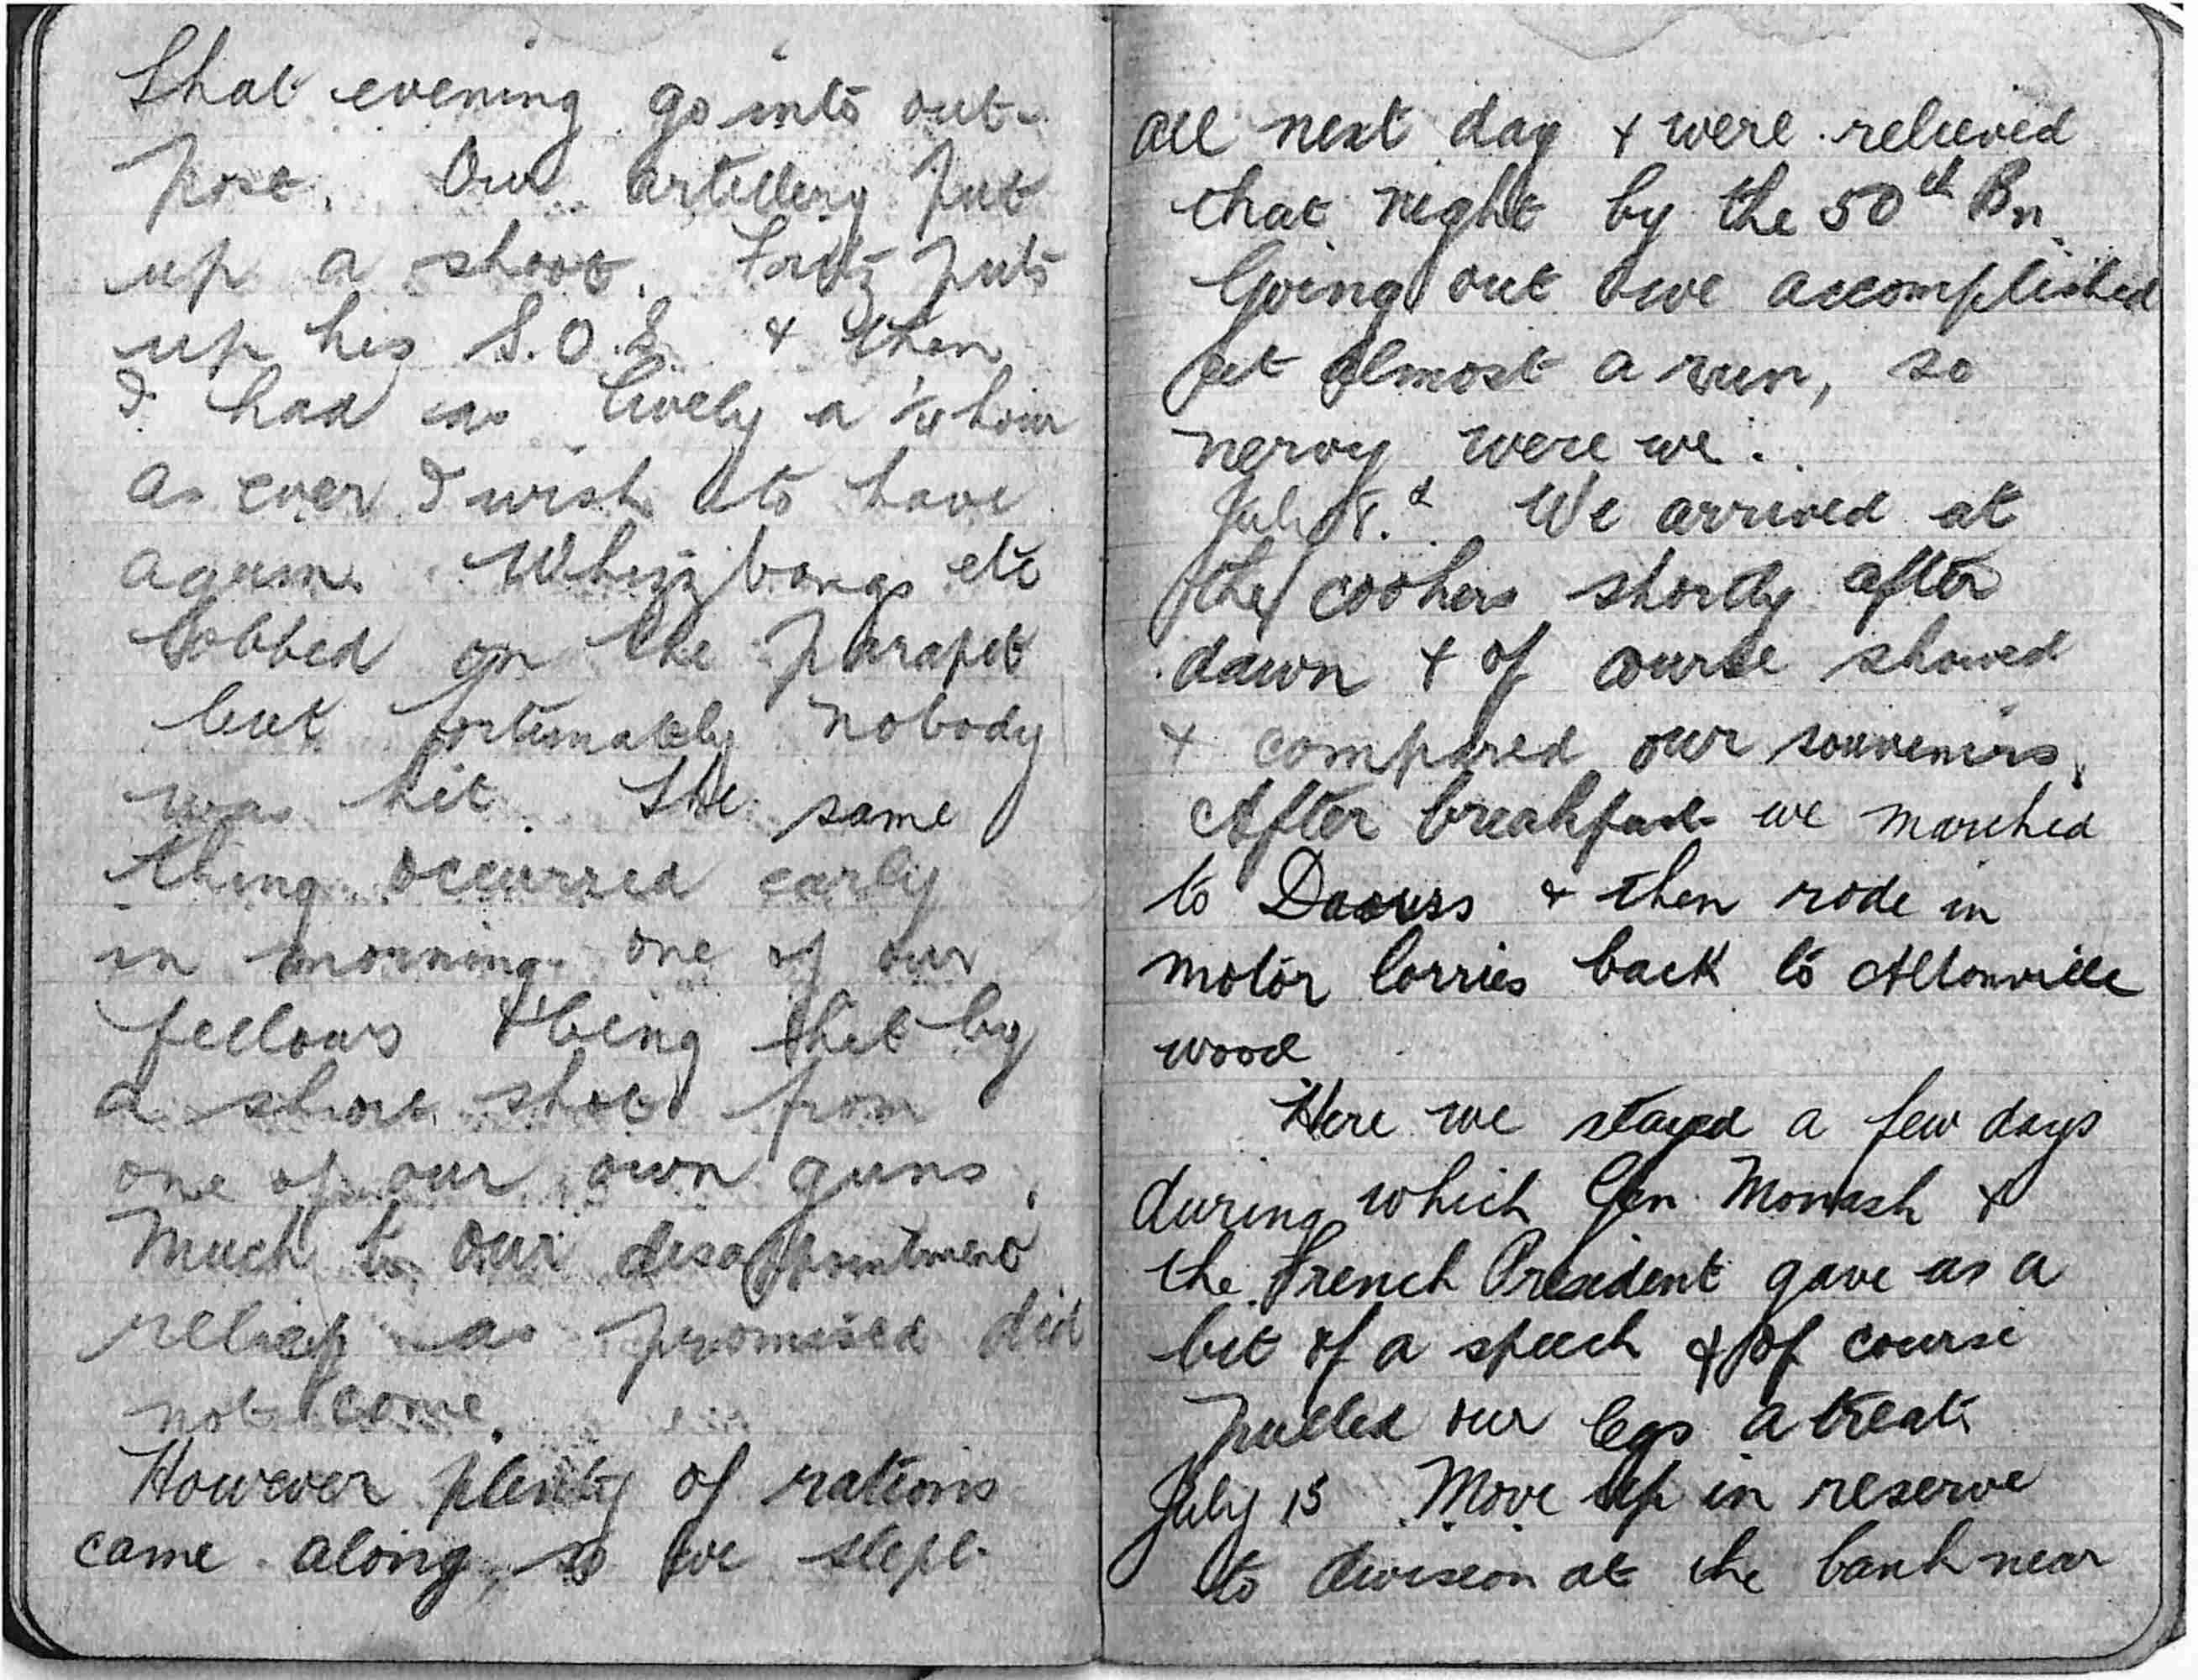 That evening go into out-
post. Our artillery put
up a shoot. Fritz puts
up his S.O.S. & then
I had as lively a 1/4 hour
as ever I wish to have
again. Whizz bangs etc
lobbed on the parapet
but fortunately nobody
was hit. The same
thing occurred early
in morning one of our
fellows being hit by
a short shot from
one of our own guns.
Much to our disappointment
relief as promised did
not come.
However plenty of rations
came along, so we slept
all next day & were relieved
that night by the 50th Bn
Going out we accomplished
at almost a run, so
nervy were we.
July 8. We arrived at
the cookers shortly after
dawn & of course showed
& compared our souvenirs.
After breakfast we marched
to Daours & then rode in
motor lorries back to Allonville
wood
Here we stayed a few days
during which Gen Monash &
the French President gave us a
bit of a speech & of course
pulled our legs a treat.
July 15 Move up in reserve
to division at the bank near